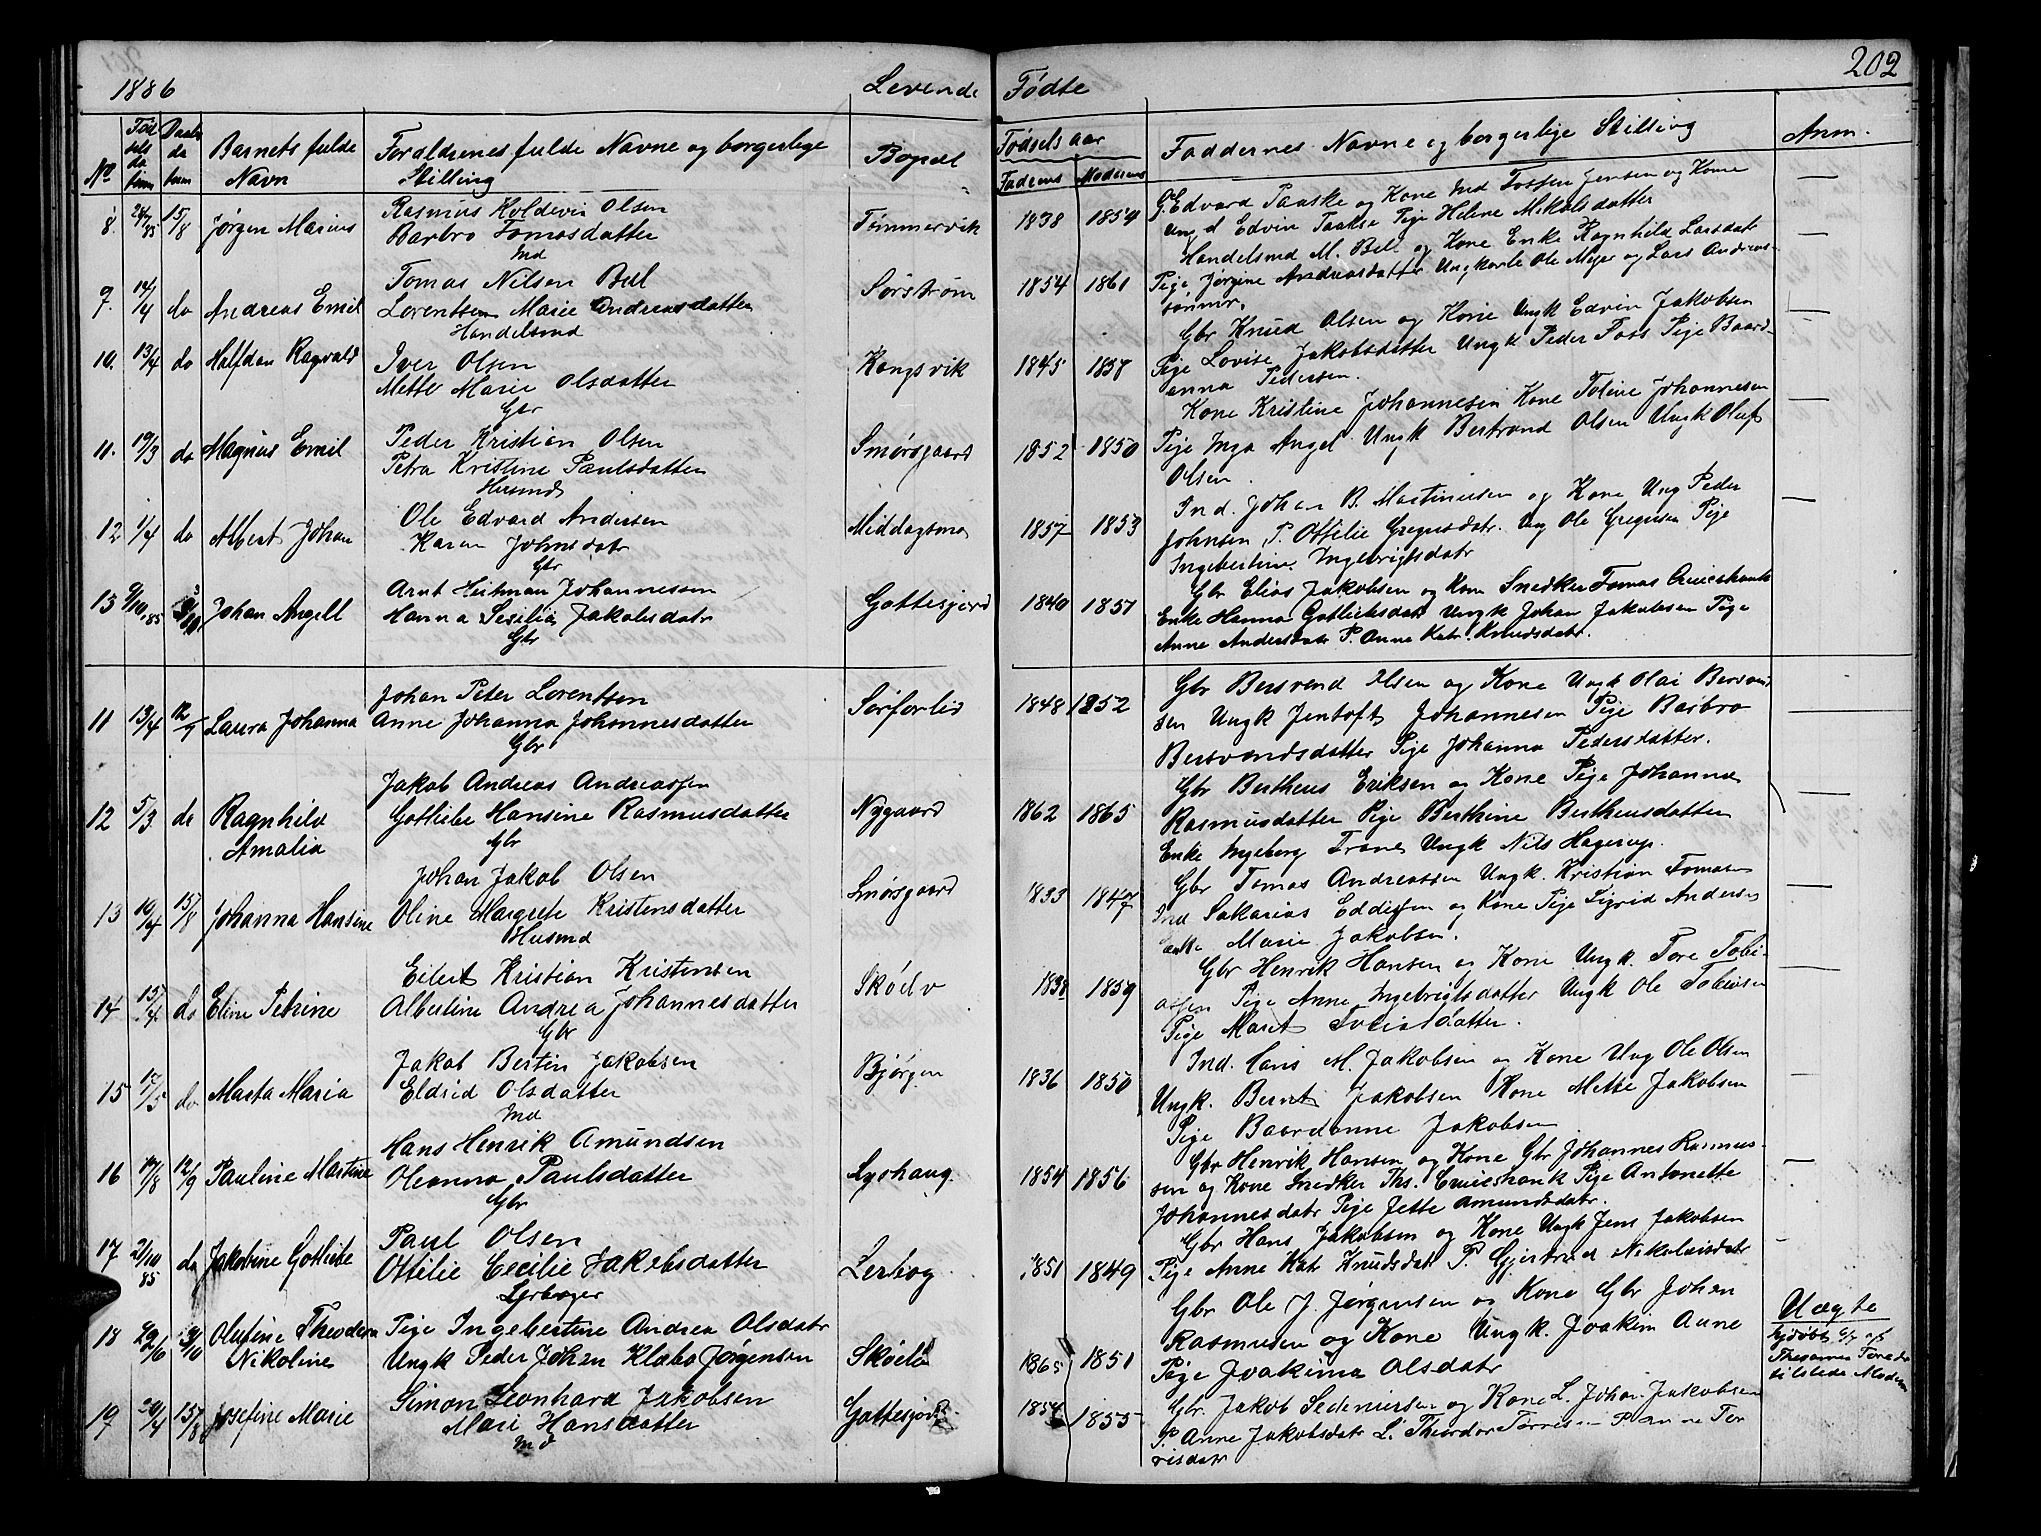 202
1886 Levende Fødte
No Fødselsdatum Daabsdatum Barnets fulde Navn Forældrenes fulde Navne og borgerlige Stilling Bopæl Fødselsaar Faderens Moderens Faddernes Navne og borgerlige Stilling Anm.
8. 24/7 85 15/8 Jørgen Marius
Rasmus Koldevin Olsen
Barbro Tomasdatter
Ind
Tømmervik 1838 1854
Edvard Paaske og Kone Ind Toffen Jensen og Kone
Ung d Edvin Taakse Pige Helene Mikalsdatter
Handelsmd M. Bul og Kone Enke Ragnhild Larsdatr
9. 14/4 do Andreas Emil
Tomas Nilsen Bul
Lorentsen Marie Andreasdatter
Handelsmd
Sørstrøm 1854 1861
Pige Jørgine Andreasdatter Ungkarle Ole Meyer og Lars Andreas-
sønner.
10. 13/4 do Halfdan Ragvald
Iver Olsen
Mette Marie Olsdatter
Gbr
Kongsvik 1845 1837
Gbr Knud Olsen og Kone Ungk Edvin Jakobsen
Pige Lovise Jakobsdatter Ungk Peder Foss Pige Baard-
anna Pedersen.
11. 19/3 do Magnus Emil
Peder Kristian Olsen
Petra Kristine Paulsdatter
Husmd
Smørsgaard 1852 1850
Kone Kristine Johannesen Kone Toline Johannesen
Pige Inga Angel Ungk Bertrand Olsen Ungk Oluf
Olsen.
12 1/4 do Albert Johan
Ole Edvard Andersen
Karen Johnsdatr
Gbr
Middagsmo 1857 1853
Ind. Johan B. Martinusen og Kone Ung Peder
Johnsen, P. Ottilie Gregusdatr. Ung Ole Gregusen Pige
Ingebertine Ingebrigtsdatr
13 9/10 85 3/10 Johan Angell
Arnt Heitman Johannessen
Hanna Sesilia Jakobsdatr
Gbr
Gattesjord 1840 1851
Gbr Elias Jakobsen og Kone Snedker Tomas Cruickshank
Enke Hanna Gotliebsdatr Ungk Johan Jakobsen Pige
Anne Andersdatr P. Anne Katr Knudsdatr.
11 13/4 12/7 Laura Johanna
Johan Peter Lorentsen
Anne Johanna Johannesdatter
Gbr
Sørforlid 1848 1852
Gbr Bersvend Olsen og Kone Ungk Olai Bersvend
sen Ungk Jentoft Johannesen Pige Barbro
Bersvendsdatter Pige Johanna Pedersdatter.
12 5/3 do Ragnhild Amalia
Jakob Andreas Andreassen
Gotliebe Hansine Rasmusdatter
Gbr
Nygaard 1862 1865
Gbr Bertheus Eriksen og Kone Pige Johanna
Rasmusdatter Pige Berthine Bertheusdatter
Enke Ingeborg Trane Ungk Nils Hagerup.
13 10/4 15/8 Johanna Hansine
Johan Jakob Olsen
Oline Margrete Kristensdatter
Husmd
Smørsgaard 1833 1847
Gbr Tomas Andreassen Ungk. Kristian Tomasen
Ind Sakarias Eddissen og Kone Pige Sigrid Anders
Enke Marie Jakobsen.
14 15/4 do Eline Petrine
Eilert Kristian Kristensen
Albertine Andrea Johannesdatter
Gbr
Skødv 1838 1859
Gbr Henrik Hansen og Kone Ungk. Tore Tobi-
assen Pige Anne Ingebrigtsdatter Ungk Ole Tobiasen
Pige Maret Tobiasdatter.
15 17/5 do Marta Maria
Jakob Bertin Jakobsen
Eldrid Olsdatter
Ind
Bjørgen 1836 1850
Ind. Hans M. Jakobsen og Kone Ung Ole Olsen
Ungk. Bernt Jakobsen Kone Mette Jakobsen
Pige Baardanne Jakobsen
16 17/8 12/9 Pauline Martine
Hans Henrik Amundsen
Oleanna Paulsdatter
Gbr
Lyshaug. 1854 1856
Gbr Henrik Hansen og Kone Gbr Johannes Rasmus-
sen og Kone Snedker Ths. Cruickshank Pige Antonette
Johannesdatr Pige Jette Amundsdatr.
17 21/10 85 do Jakobine Gotliebe
Paul Olsen
Ottilie Cecilie Jakobsdatter
Lerbog 1851 1849
Gbr Hans Jakobsen og Kone Ungk Jens Jakobsen
Pige Anne Katr Knudsdatr P. Gjertrud Nikolaisdatr
18 29/6 3/10 Olufine Theodora Nikoline
Pige Ingebertine Andrea Olsdatr
Ungk Peder Johan Klæbo Jørgensen
Skødv 1865 1851
Gbr Ole J. Jørgensen og Kone Gbr Johan
Rasmusen og Kone Ungk. Joakim Aune
Pige Joakima Olsdatr
Uægte
19 20/4 15/8 Josefine Marie
Simon Leonhard Jakobsen
Mari Hansdatter
Ind
Gattesjord 1854 1855
Gbr. Jakob Sedeniusen og Kone L. Johan Jakobsen
P. Anne Jakobsdatr L. Theodor Torresen P Anne Tor
risdatr